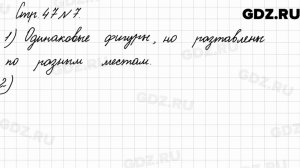 Стр. 47 №7
GDZ.RU
1) Одинаковые фигуры, но розтавлены
по розным местам.
2)
GDZ.RU